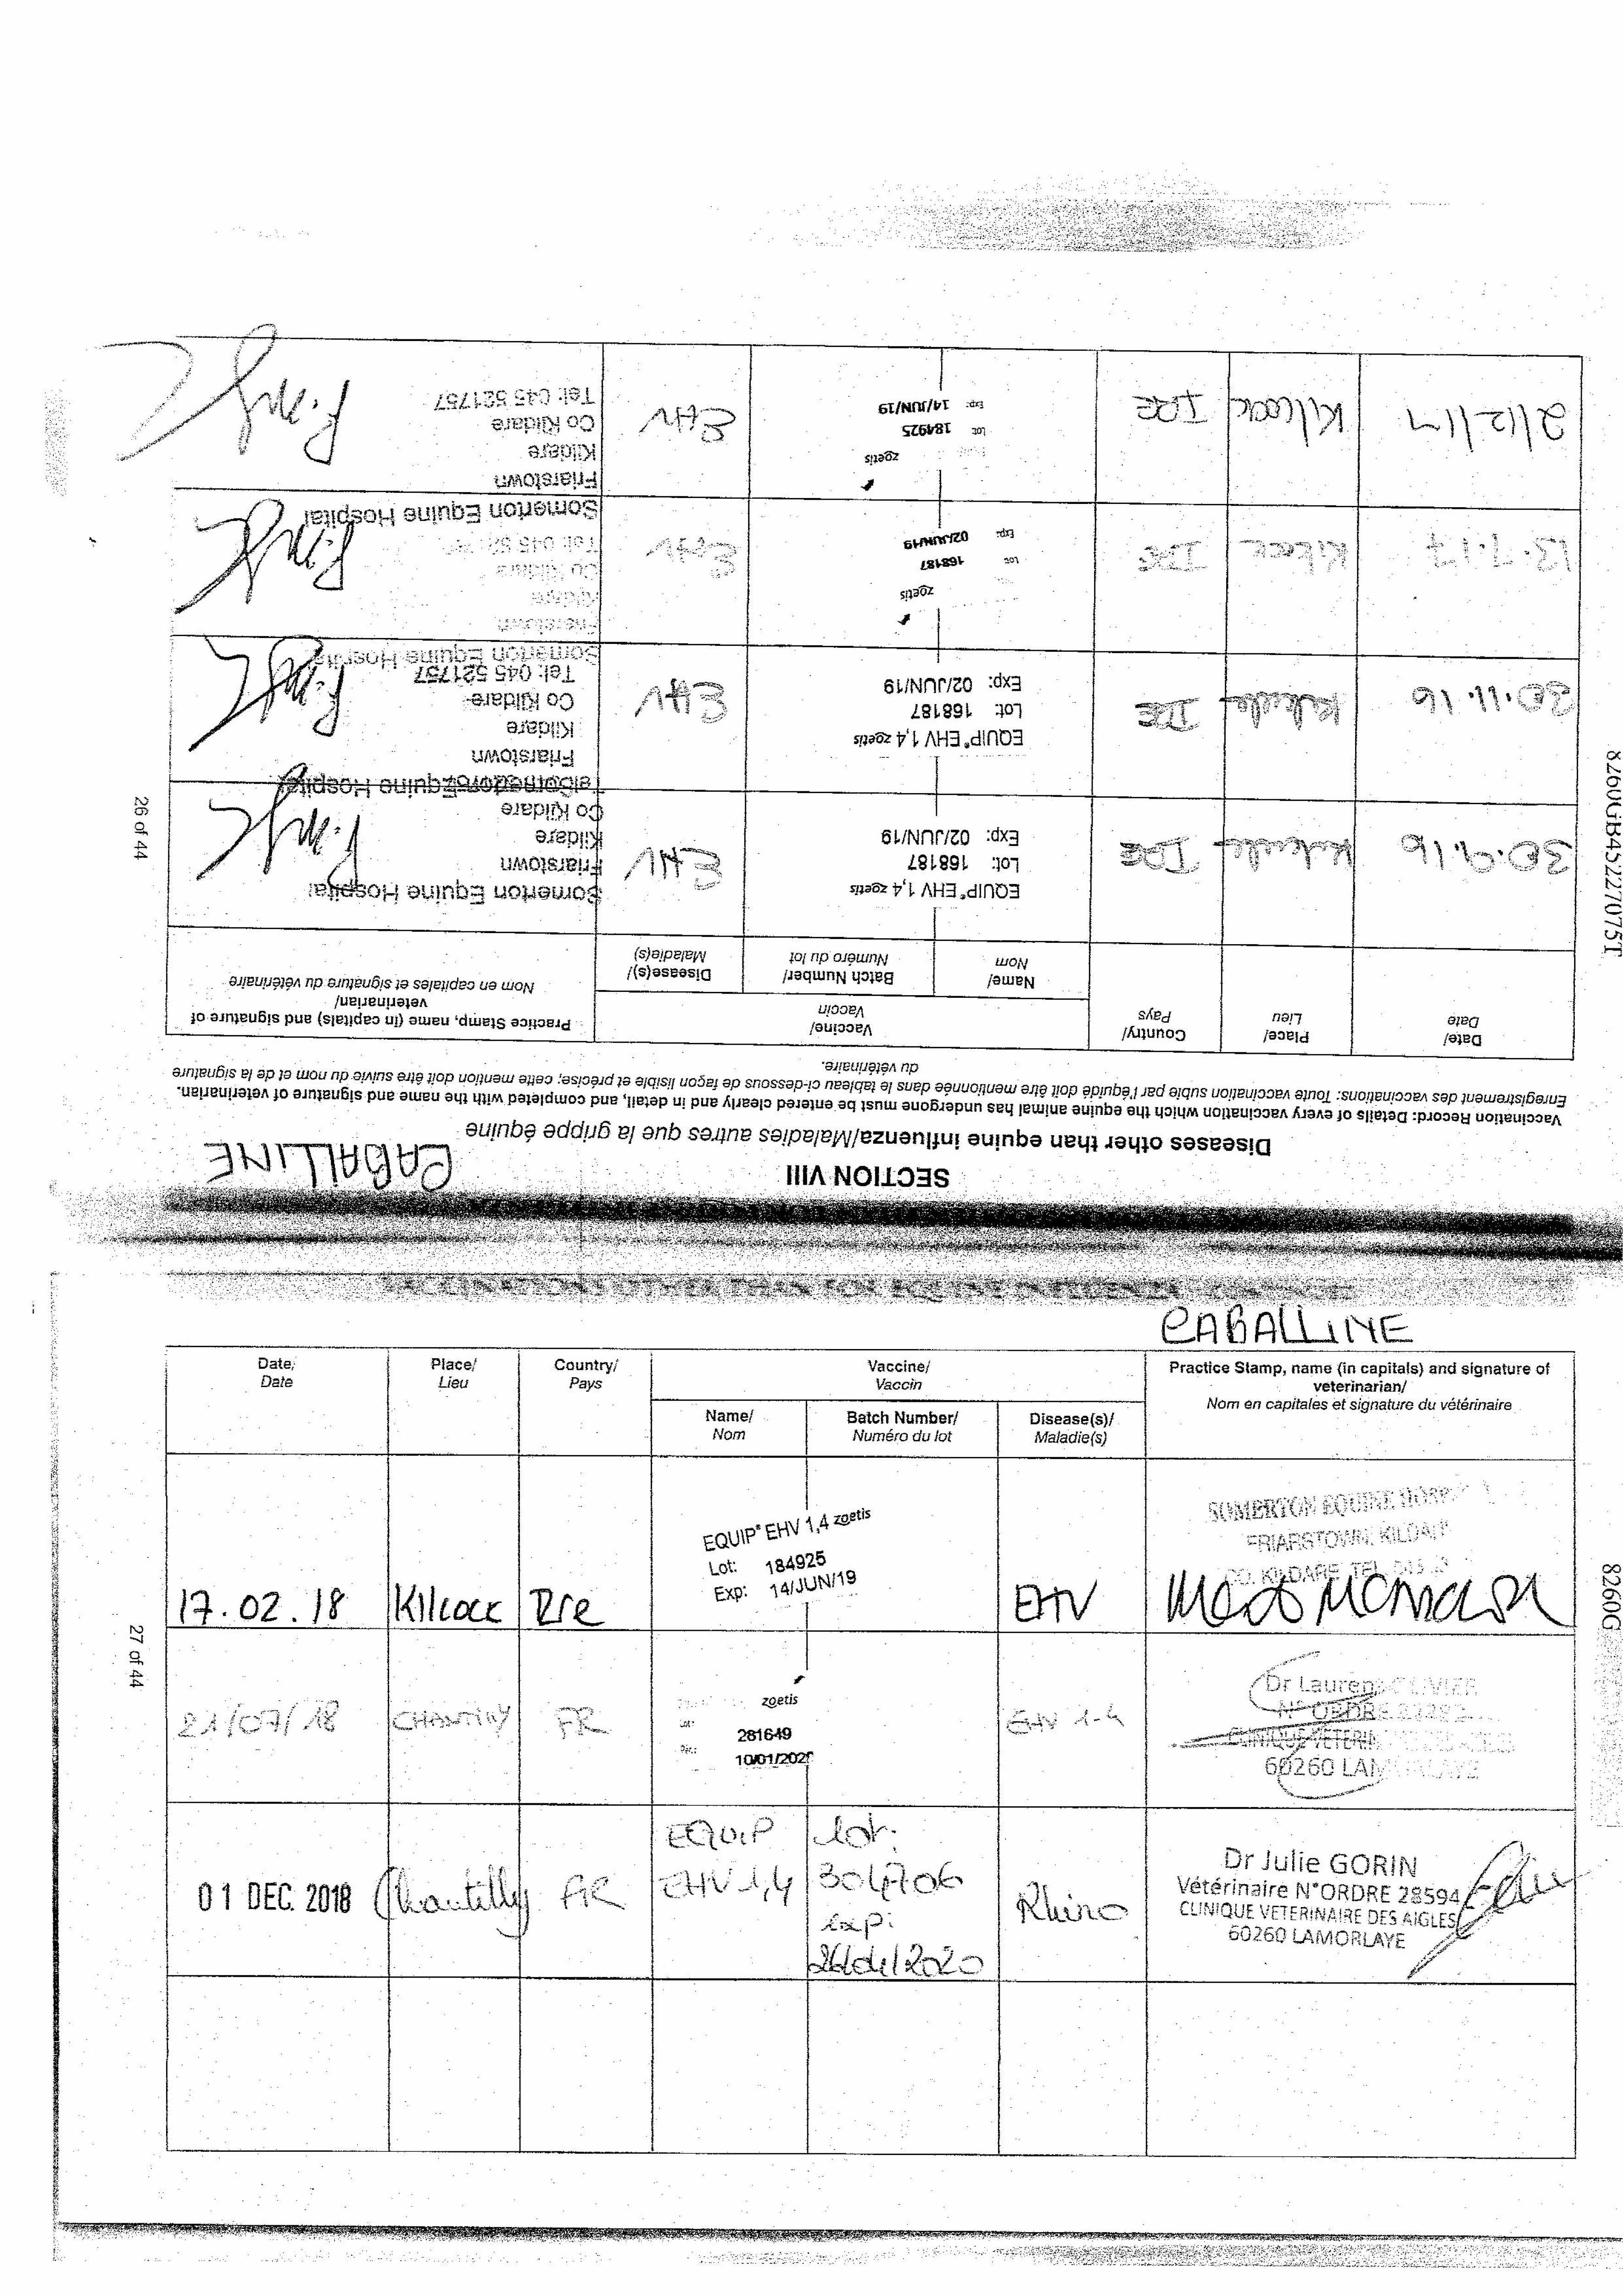 SECTION VIII
CABALLINE
Diseases other than equine influenza/Maladies autres que la grippe équine
Vaccination Record: Details of every vaccination which the equine animal has undergone must be entered clearly and in detail, and completed with the name and signature of veterinarian.
Enregistrement des vaccinations: Toute vaccination subie par l'équidé doit être mentionnée dans le tableau ci-dessous de façon lisible et précise; cette mention doit être suivie du nom et de la signature
du vétérinaire.
Date/
Date
Place/
Lieu
Country/
Pays
Vaccine/
Vaccin
Practice Stamp, name (in capitals) and signature of
veterinarian/
Nom en capitales et signature du vétérinaire
Name/
Nom
Batch Number/
Numéro du lot
Disease(s)/
Maladie(s)
30.9.16
IRE
EQUIP® EHV 1,4 zoetis
Lot: 168187
Exp: 02/JUN/19
EHV
Somerton Equine Hospital
Friarstown
Kildare
Co Kildare
30.11.16
IRE
EQUIP® EHV 1,4 zoetis
Lot: 168187
Exp: 02/JUN/19
EHV
Equine Hospital
Friarstown
Kildare
Co Kildare
Tel: 045 521757
13.7.17
IRE
zoetis
Lot: 168187
Exp: 02/JUN/19
EHV
Somerton Equine Hospital
Friarstown
Kildare
Co Kildare
Tel: 045
2/12/17
Kilcock
IRE
zoetis
Lot: 184925
Exp: 14/JUN/19
EHV
Somerton Equine Hospital
Friarstown
Kildare
Co Kildare
Tel: 045 521757
26 of 44
8260GB45227075T
CABALLINE
Date/
Date
Place/
Lieu
Country/
Pays
Vaccine/
Vaccin
Practice Stamp, name (in capitals) and signature of
veterinarian/
Nom en capitales et signature du vétérinaire
Name/
Nom
Batch Number/
Numéro du lot
Disease(s)/
Maladie(s)
17.02.18
Kilcock
Ire
EQUIP® EHV 1,4 zoetis
Lot: 184925
Exp: 14/JUN/19
EHV
SOMERTON EQUINE
FRIARSTOWN, KILDARE
CO. KILDARE TEL
21/07/18
CHANTILLY
FR
zoetis
Lot: 281649
10/01/202
EHV 1-4
Dr Laurent OLIVIER
N° ORDRE
CLINIQUE VETERIN
60260 LAMORLAYE
01 DEC. 2018
Chantilly
FR
EQUIP
EHV 1,4
lot:
304706
exp:
2020
Rhino
Dr Julie GORIN
Vétérinaire N°ORDRE 28594
CLINIQUE VETERINAIRE DES AIGLES
60260 LAMORLAYE
27 of 44
8260G